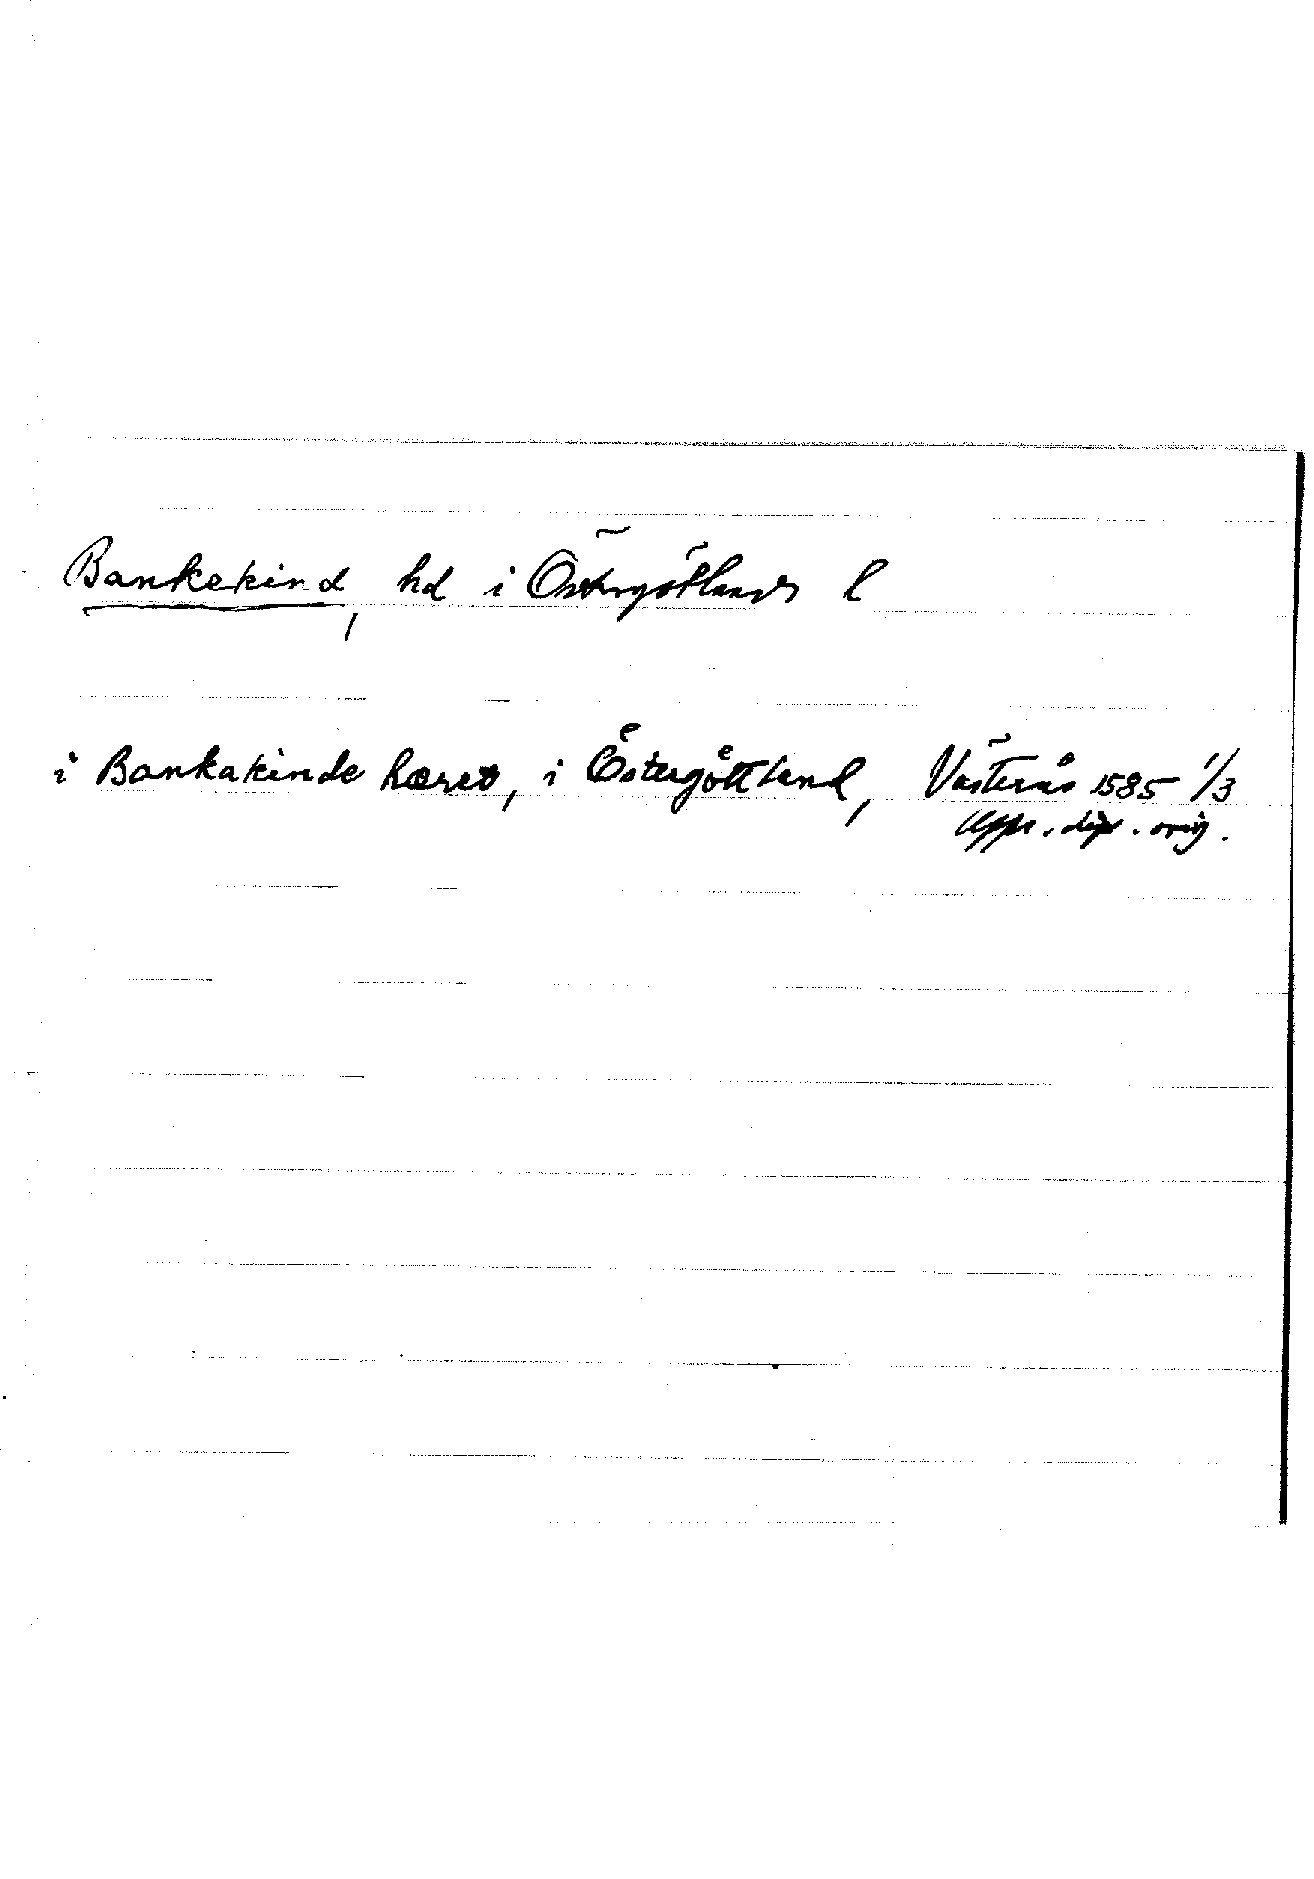 Bankekind, hd i Östergötlands l
i Bankakinde hæret, i Oͤstergoͤttland, Västerås 1585 1/3
Upps. dipl. orig.